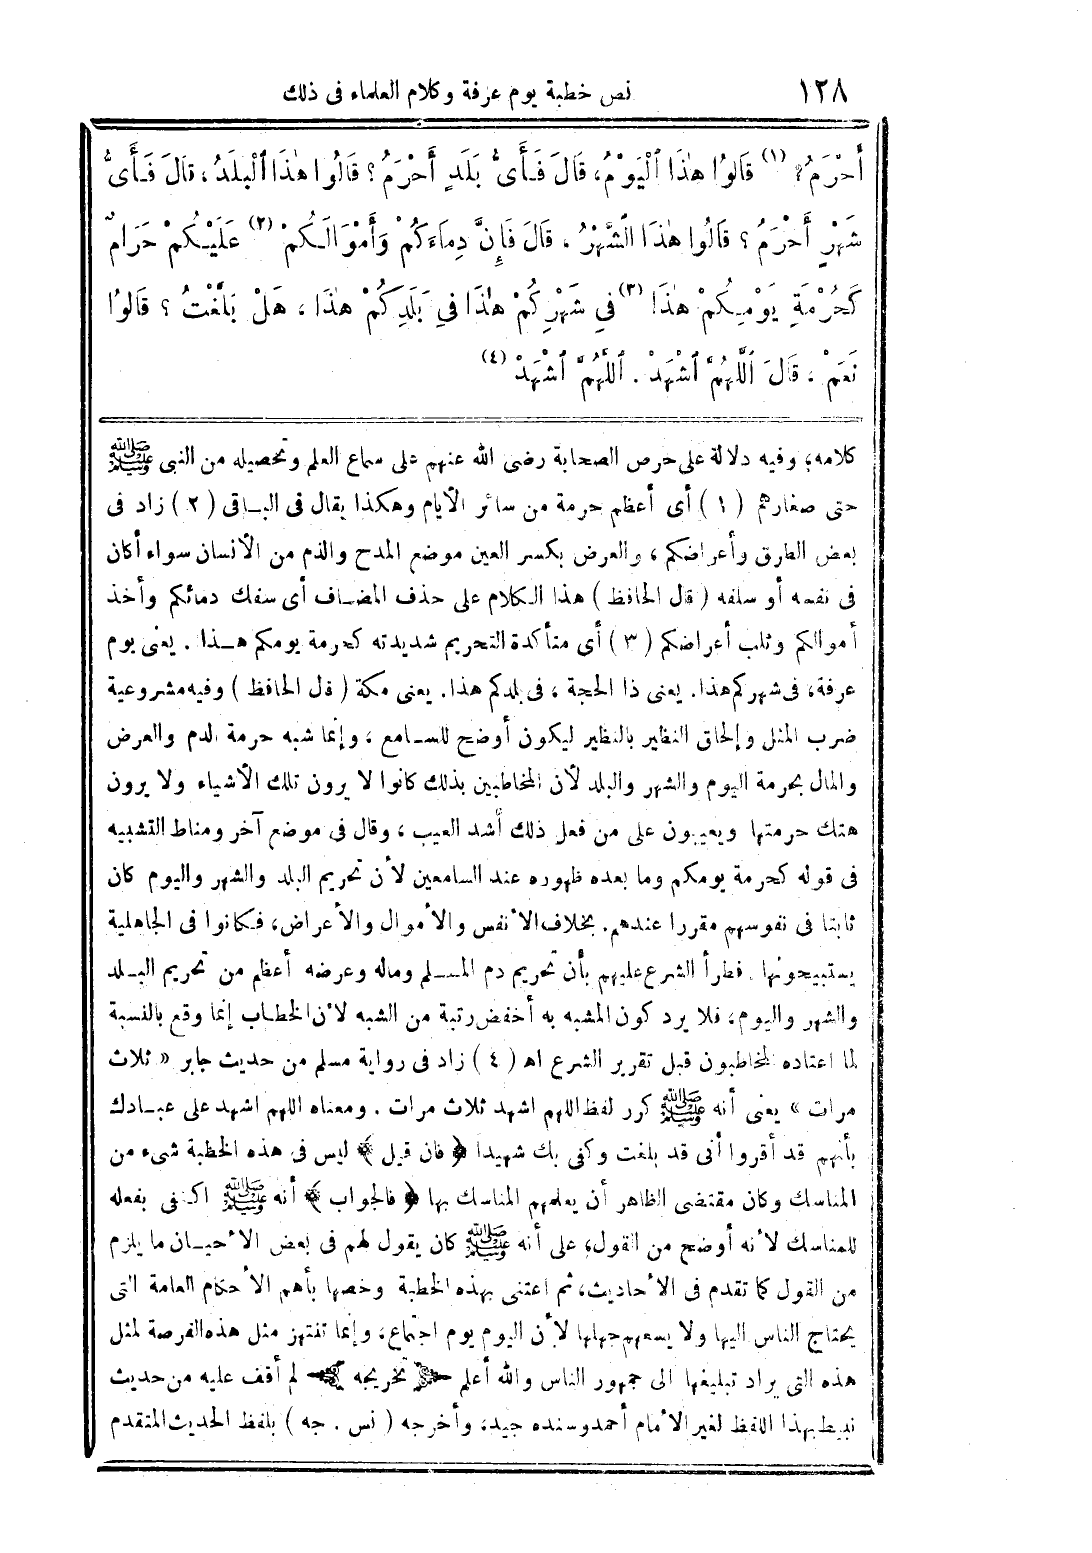 ١٢٨ نص خطبة يوم عرفة وكلام العلماء فى ذلك
أَحْرَمُ؟ (١) قَالُوا هٰذَا ٱلْيَوْمُ، قَالَ فَأَىُّ بَلَدٍ أَحْرَمُ؟ قَالُوا هٰذَا ٱلْبَلَدُ، قَالَ فَأَىُّ
شَهْرٍ أَحْرَمُ؟ قَالُوا هٰذَا الشَّهْرُ، قَالَ فَإِنَّ دِمَاءَكُمْ وَأَمْوَالَكُمْ (٢) عَلَيْكُمْ حَرَامٌ
كَحُرْمَةِ يَوْمِكُمْ هٰذَا (٣) فِي شَهْرِكُمْ هٰذَا فِي بَلَدِكُمْ هٰذَا، هَلْ بَلَّغْتُ؟ قَالُوا
نَعَمْ، قَالَ ٱللَّهُمَّ ٱشْهَدْ. ٱللَّهُمَّ ٱشْهَدْ (٤)
كلامه؛ وفيه دلالة على حرص الصحابة رضى الله عنهم على سماع العلم وتحصيله من النبى ﷺ
حتى صغارهم (١) أى أعظم حرمة من سائر الأيام وهكذا يقال فى الباقى (٢) زاد فى
بعض الطرق وأعراضكم، والعرض بكسر العين موضع المدح والذم من الأنسان سواء أكان
فى نفسه أو سلفه (قال الحافظ) هذا الكلام على حذف المضاف أى سفك دمائكم وأخذ
أموالكم وثلب أعراضكم (٣) أى متأكدة التحريم شديدته كحرمة يومكم هذا. يعنى يوم
عرفة، فى شهركم هذا. يعنى ذا الحجة، فى بلدكم هذا. يعنى مكة (قال الحافظ) وفيه مشروعية
ضرب المثل وإلحاق النظير بالنظير ليكون أوضح للسامع، وإنما شبه حرمة الدم والعرض
والمال بحرمة اليوم والشهر والبلد لأن المخاطبين بذلك كانوا لا يرون تلك الأشياء ولا يرون
هتك حرمتها ويعيبون على من فعل ذلك أشد العيب، وقال فى موضع آخر ومناط التشبيه
فى قوله كحرمة يومكم وما بعده ظهوره عند السامعين لأن تحريم البلد والشهر واليوم كان
ثابتا فى نفوسهم مقررا عندهم. بخلاف الأنفس والأموال والأعراض، فكانوا فى الجاهلية
يستبيحونها. فطرأ الشرع عليهم بأن تحريم دم المسلم وماله وعرضه أعظم من تحريم البلد
والشهر واليوم، فلا يرد كون المشبه به أخفض رتبة من الشبه لأن الخطاب إنما وقع بالنسبة
لما اعتاده المخاطبون قبل تقرير الشرع اه (٤) زاد فى رواية مسلم من حديث جابر « ثلاث
مرات » يعنى أنه ﷺ كرر لفظ اللهم اشهد ثلاث مرات. ومعناه اللهم اشهد على عبادك
بأنهم قد أقروا أنى قد بلغت وكفى بك شهيدا ﴿ فان قيل ﴾ ليس فى هذه الخطبة شىء من
المناسك وكان مقتضى الظاهر أن يعلمهم المناسك بها ﴿ فالجواب ﴾ أنه ﷺ اكتفى بفعله
للمناسك لأنه أوضح من القول، على أنه ﷺ كان يقول لهم فى بعض الأحيان ما يلزم
من القول كما تقدم فى الأحاديث، ثم اعتنى بهذه الخطبة وخصها بأهم الأحكام العامة التى
يحتاج الناس اليها ولا يسعهم جهلها لأن اليوم يوم اجتماع، وإنما تنتهز مثل هذه الفرصة لمثل
هذه التى يراد تبليغها الى جمهور الناس والله أعلم تخريجه لم أقف عليه من حديث
نبيط بهذا اللفظ لغير الأمام أحمد وسنده جيد، وأخرجه (نس. جه) بلفظ الحديث المتقدم